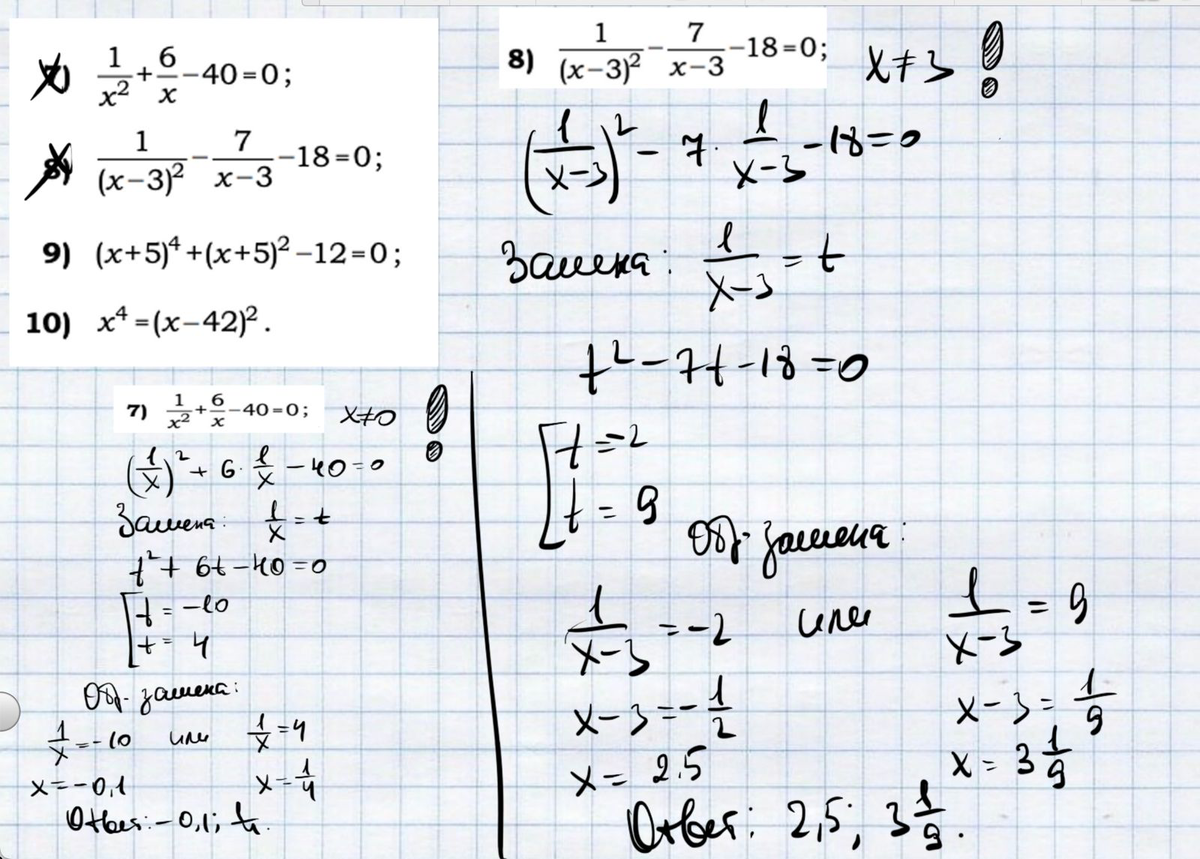 7) 1/x² + 6/x − 40 = 0;
8) 1/(x−3)² − 7/(x−3) − 18 = 0;
9) (x+5)⁴ + (x+5)² − 12 = 0;
10) x⁴ = (x−42)².
7) 1/x² + 6/x − 40 = 0; x ≠ 0 !
(1/x)² + 6 · 1/x − 40 = 0
Замена: 1/x = t
t² + 6t − 40 = 0
[ t = −10
t = 4
Обр. замена:
1/x = −10 или 1/x = 4
x = −0,1 x = 1/4
Ответ: −0,1; 1/4.
8) 1/(x−3)² − 7/(x−3) − 18 = 0; x ≠ 3 !
(1/(x−3))² − 7 · 1/(x−3) − 18 = 0
Замена: 1/(x−3) = t
t² − 7t − 18 = 0
[ t = −2
t = 9
Обр. замена:
1/(x−3) = −2 или 1/(x−3) = 9
x − 3 = −1/2 x − 3 = 1/9
x = 2.5 x = 3 1/9
Ответ: 2,5; 3 1/9.